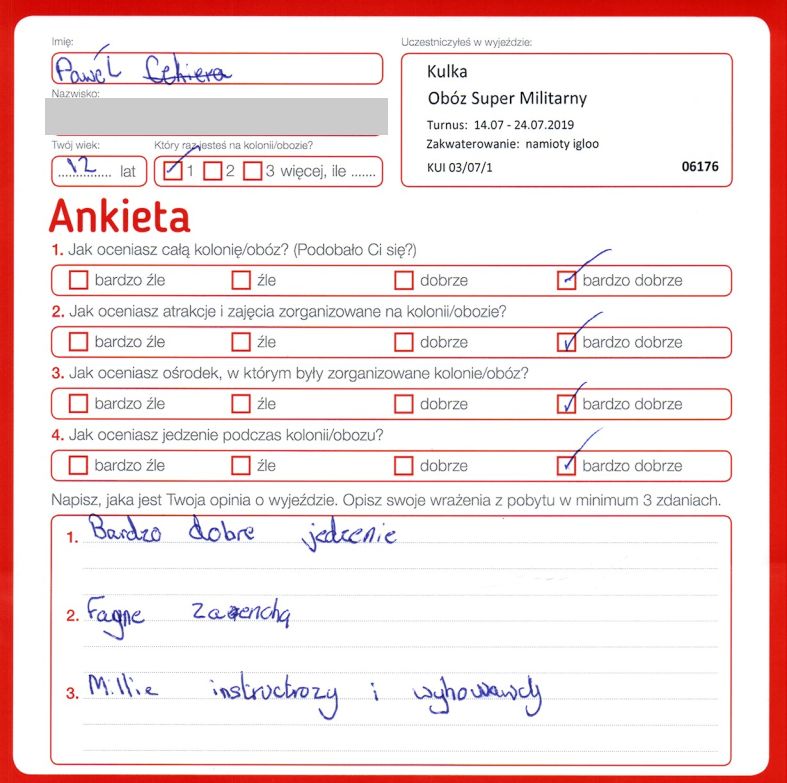 Imię:
Uczestniczyłeś w wyjeździe:
Paweł
Kulka
Obóz Super Militarny
Nazwisko:
Turnus: 14.07 - 24.07.2019
Zakwaterowanie: namioty igloo
KUI 03/07/1 06176
Twój wiek: Który raz jesteś na kolonii/obozie?
12 lat 1 2 3 więcej, ile .......
Ankieta
1. Jak oceniasz całą kolonię/obóz? (Podobało Ci się?)
bardzo źle źle dobrze bardzo dobrze
2. Jak oceniasz atrakcje i zajęcia zorganizowane na kolonii/obozie?
bardzo źle źle dobrze bardzo dobrze
3. Jak oceniasz ośrodek, w którym były zorganizowane kolonie/obóz?
bardzo źle źle dobrze bardzo dobrze
4. Jak oceniasz jedzenie podczas kolonii/obozu?
bardzo źle źle dobrze bardzo dobrze
Napisz, jaka jest Twoja opinia o wyjeździe. Opisz swoje wrażenia z pobytu w minimum 3 zdaniach.
1. Bardzo dobre jedzenie
2. Fagne
3. Millie instructrozy i wyhowawcy